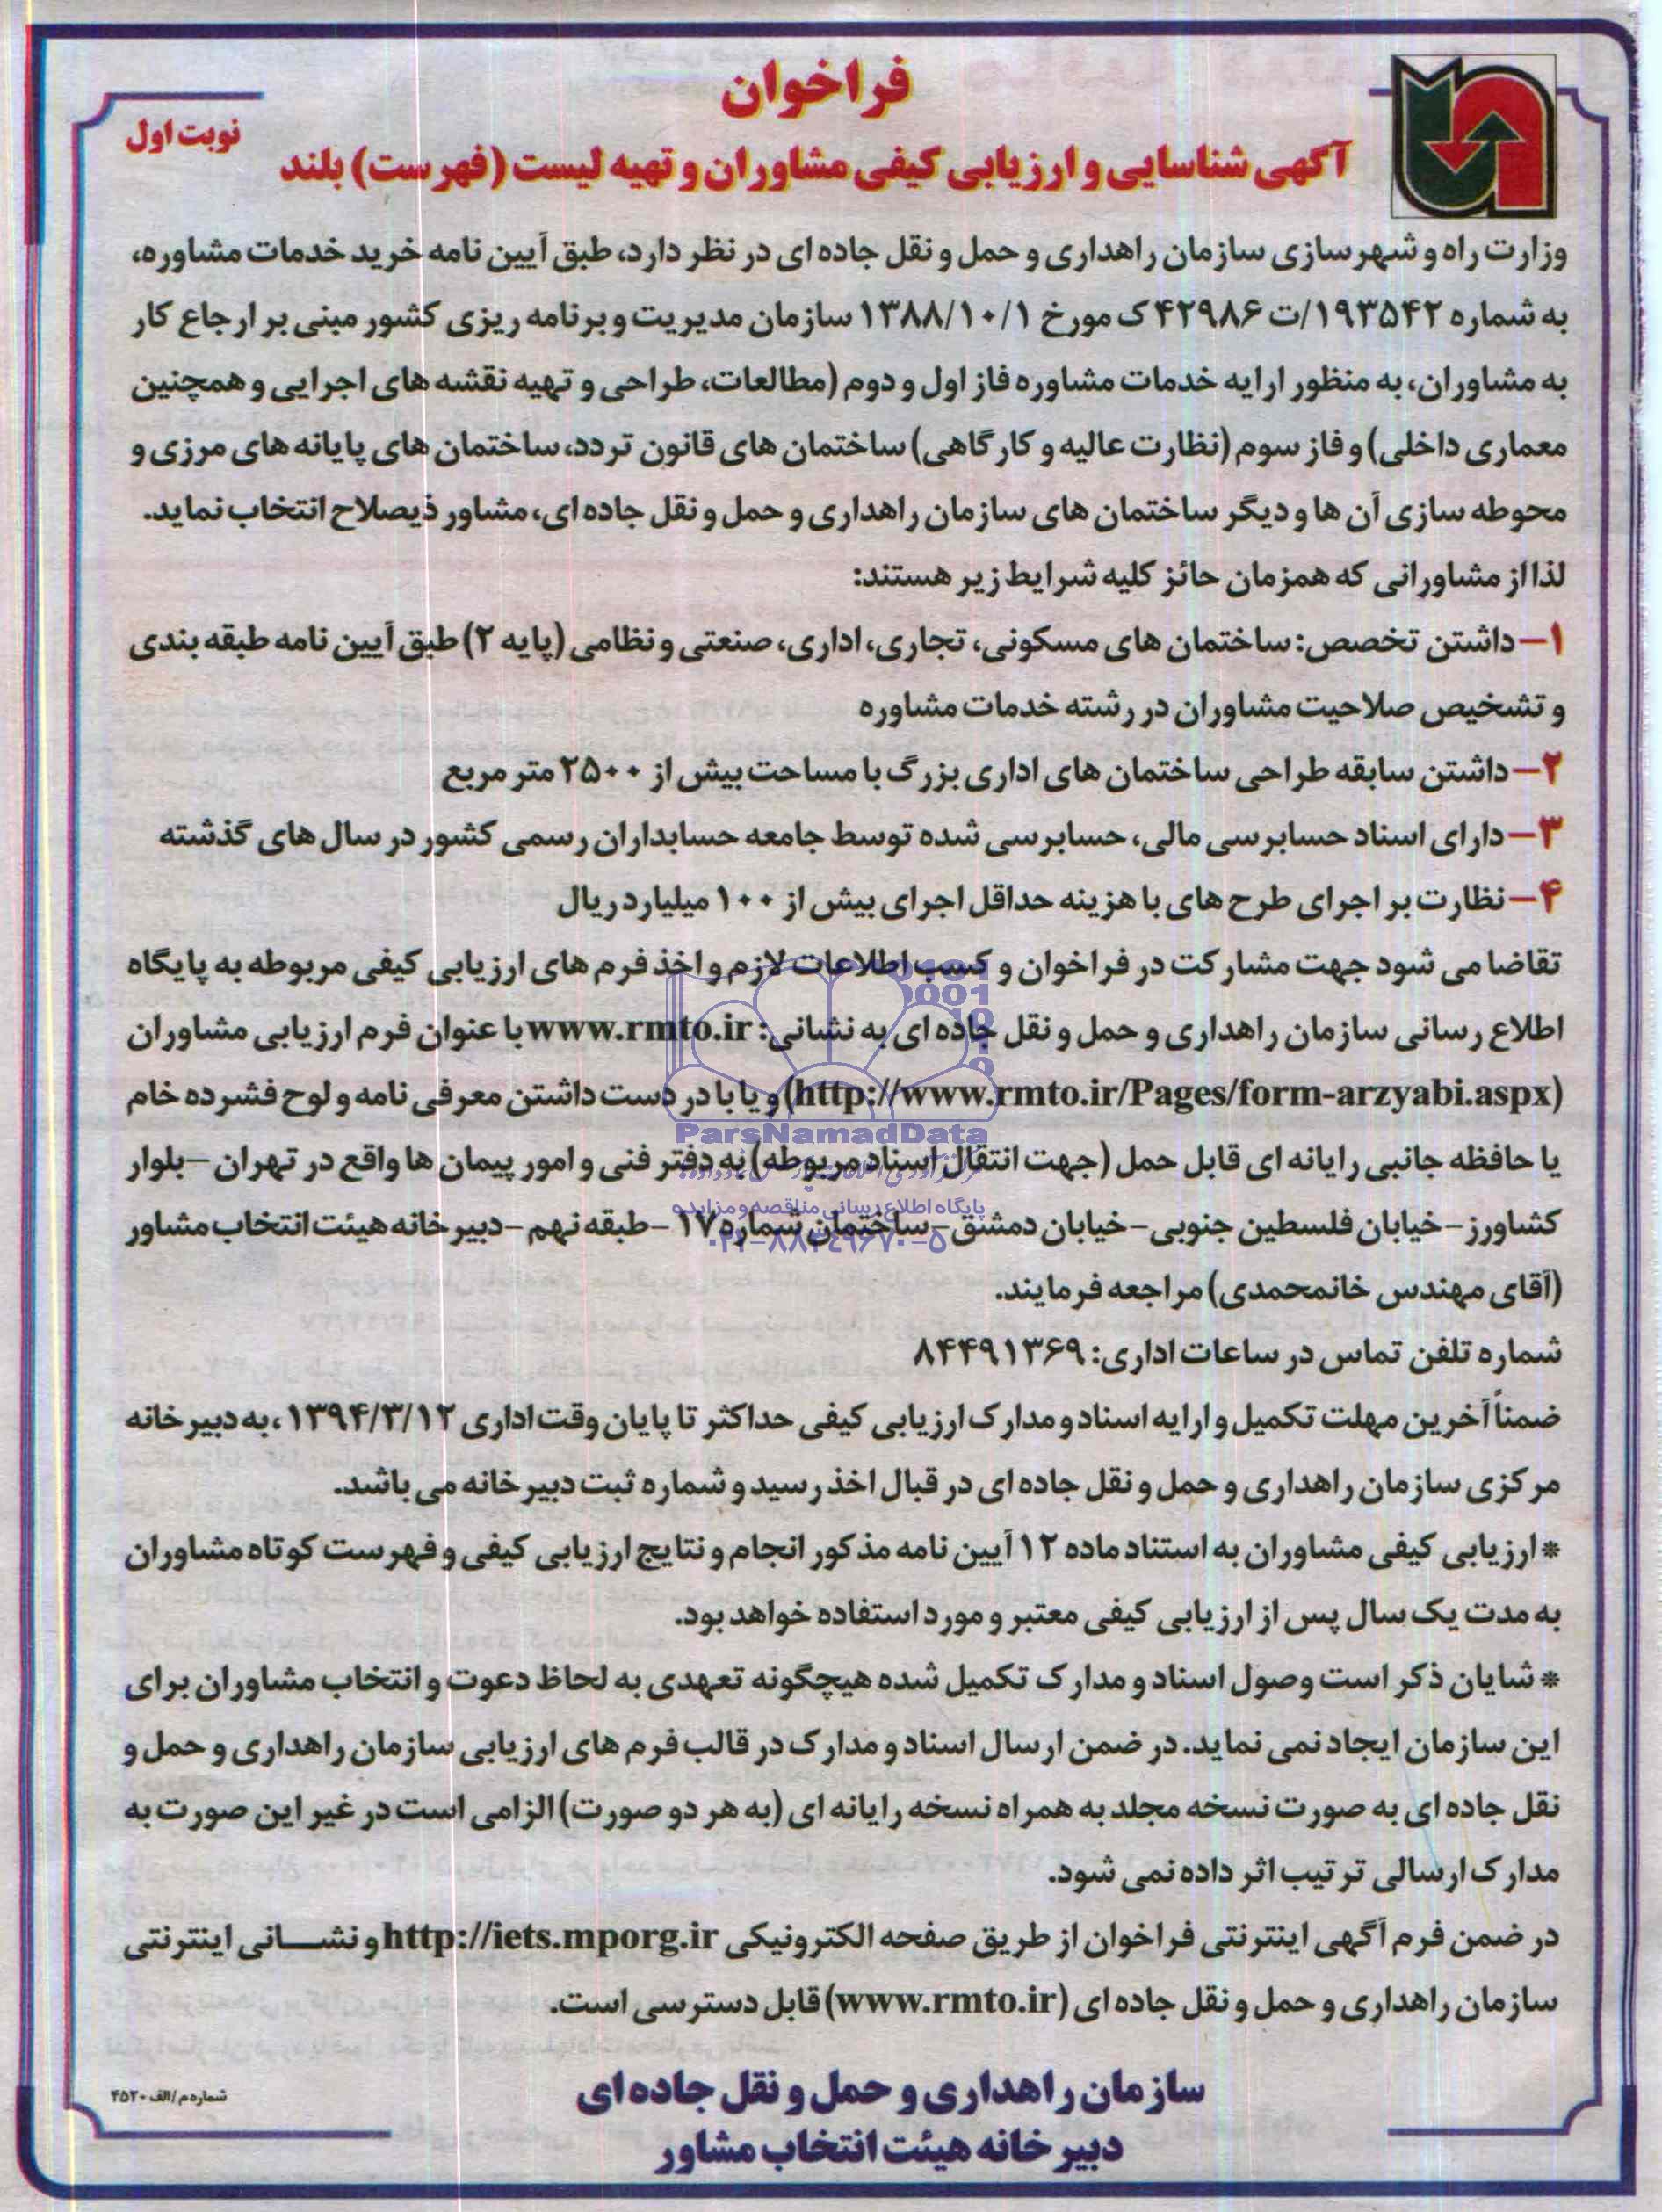 فراخوان
آگهی شناسایی و ارزیابی کیفی مشاوران و تهیه لیست (فهرست) بلند
نوبت اول
وزارت راه و شهرسازی سازمان راهداری و حمل و نقل جاده ای در نظر دارد، طبق آیین نامه خرید خدمات مشاوره،
به شماره ۱۹۳۵۴۲/ت ۴۲۹۸۶ ک مورخ ۱۳۸۸/۱۰/۱ سازمان مدیریت و برنامه ریزی کشور مبنی بر ارجاع کار
به مشاوران، به منظور ارایه خدمات مشاوره فاز اول و دوم (مطالعات، طراحی و تهیه نقشه های اجرایی و همچنین
معماری داخلی) و فاز سوم (نظارت عالیه و کارگاهی) ساختمان های قانون تردد، ساختمان های پایانه های مرزی و
محوطه سازی آن ها و دیگر ساختمان های سازمان راهداری و حمل و نقل جاده ای، مشاور ذیصلاح انتخاب نماید.
لذا از مشاورانی که همزمان حائز کلیه شرایط زیر هستند:
۱- داشتن تخصص: ساختمان های مسکونی، تجاری، اداری، صنعتی و نظامی (پایه ۲) طبق آیین نامه طبقه بندی
و تشخیص صلاحیت مشاوران در رشته خدمات مشاوره
۲- داشتن سابقه طراحی ساختمان های اداری بزرگ با مساحت بیش از ۲۵۰۰ متر مربع
۳- دارای اسناد حسابرسی مالی، حسابرسی شده توسط جامعه حسابداران رسمی کشور در سال های گذشته
۴- نظارت بر اجرای طرح های با هزینه حداقل اجرای بیش از ۱۰۰ میلیارد ریال
تقاضا می شود جهت مشارکت در فراخوان و کسب اطلاعات لازم و اخذ فرم های ارزیابی کیفی مربوطه به پایگاه
اطلاع رسانی سازمان راهداری و حمل و نقل جاده ای به نشانی: www.rmto.ir با عنوان فرم ارزیابی مشاوران
(http://www.rmto.ir/Pages/form-arzyabi.aspx) و یا با در دست داشتن معرفی نامه و لوح فشرده خام
ParsNamadData
یا حافظه جانبی رایانه ای قابل حمل (جهت انتقال اسناد مربوطه) به دفتر فنی و امور پیمان ها واقع در تهران - بلوار
پایگاه اطلاع رسانی مناقصه و مزایده
کشاورز - خیابان فلسطین جنوبی - خیابان دمشق - ساختمان شماره ۱۷ - طبقه نهم - دبیرخانه هیئت انتخاب مشاور
۰۲۱-۸۸۳۴۹۶۷۰-۵
(آقای مهندس خانمحمدی) مراجعه فرمایند.
شماره تلفن تماس در ساعات اداری: ۸۴۴۹۱۳۶۹
ضمناً آخرین مهلت تکمیل و ارایه اسناد و مدارک ارزیابی کیفی حداکثر تا پایان وقت اداری ۱۳۹۴/۳/۱۲، به دبیرخانه
مرکزی سازمان راهداری و حمل و نقل جاده ای در قبال اخذ رسید و شماره ثبت دبیرخانه می باشد.
* ارزیابی کیفی مشاوران به استناد ماده ۱۲ آیین نامه مذکور انجام و نتایج ارزیابی کیفی و فهرست کوتاه مشاوران
به مدت یک سال پس از ارزیابی کیفی معتبر و مورد استفاده خواهد بود.
* شایان ذکر است وصول اسناد و مدارک تکمیل شده هیچگونه تعهدی به لحاظ دعوت و انتخاب مشاوران برای
این سازمان ایجاد نمی نماید. در ضمن ارسال اسناد و مدارک در قالب فرم های ارزیابی سازمان راهداری و حمل و
نقل جاده ای به صورت نسخه مجلد به همراه نسخه رایانه ای (به هر دو صورت) الزامی است در غیر این صورت به
مدارک ارسالی ترتیب اثر داده نمی شود.
در ضمن فرم آگهی اینترنتی فراخوان از طریق صفحه الکترونیکی http://iets.mporg.ir و نشانی اینترنتی
سازمان راهداری و حمل و نقل جاده ای (www.rmto.ir) قابل دسترسی است.
سازمان راهداری و حمل و نقل جاده ای
دبیرخانه هیئت انتخاب مشاور
شماره م/الف ۴۵۲۰